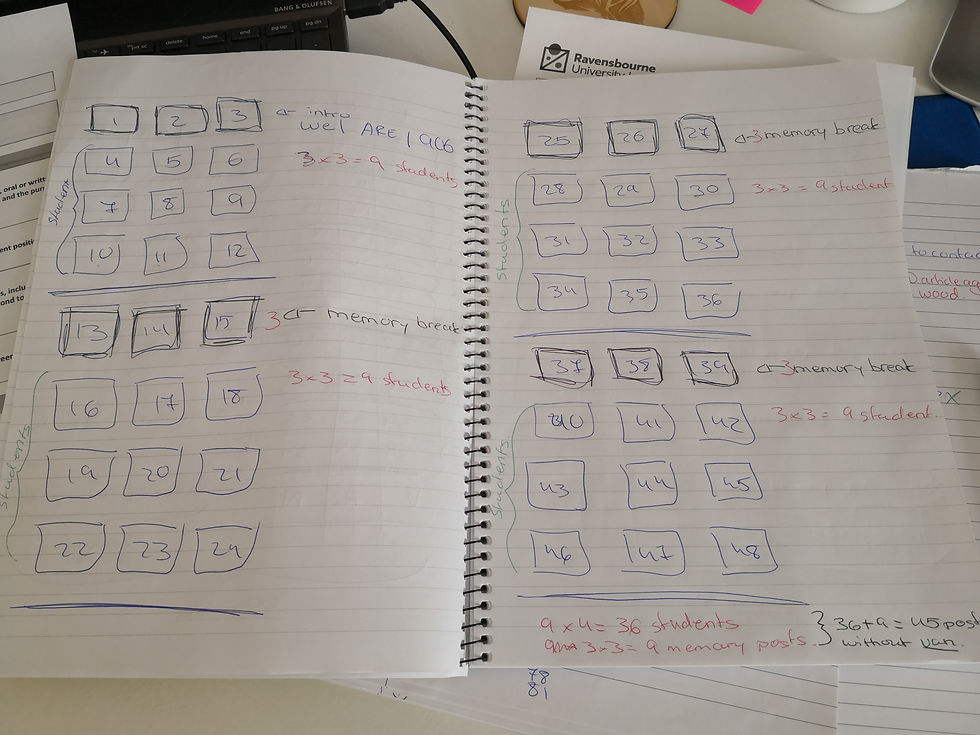 BANG & OLUFSEN
prt sc
delete
home
end
pg up
pg dn
Ravensbourne
1 2 3 intro
WE | ARE | 906
4 5 6 3x3 = 9 students
7 8 9
students
10 11 12
13 14 15 3 memory break
3x3 = 9 students
16 17 18
19 20 21
students
22 23 24
25 26 27 3 memory break
28 29 30 3x3 = 9 student
31 32 33
students
34 35 36
37 38 39 3 memory break
40 41 42 3x3 = 9 student.
43 44 45
students
46 47 48
9 x 4 = 36 students
3x3 = 9 memory posts
} 36+9 = 45 post
without van.
78
81
, oral or writt
and the pur
ent positi
s, inclu
ond to
to contac
wood.